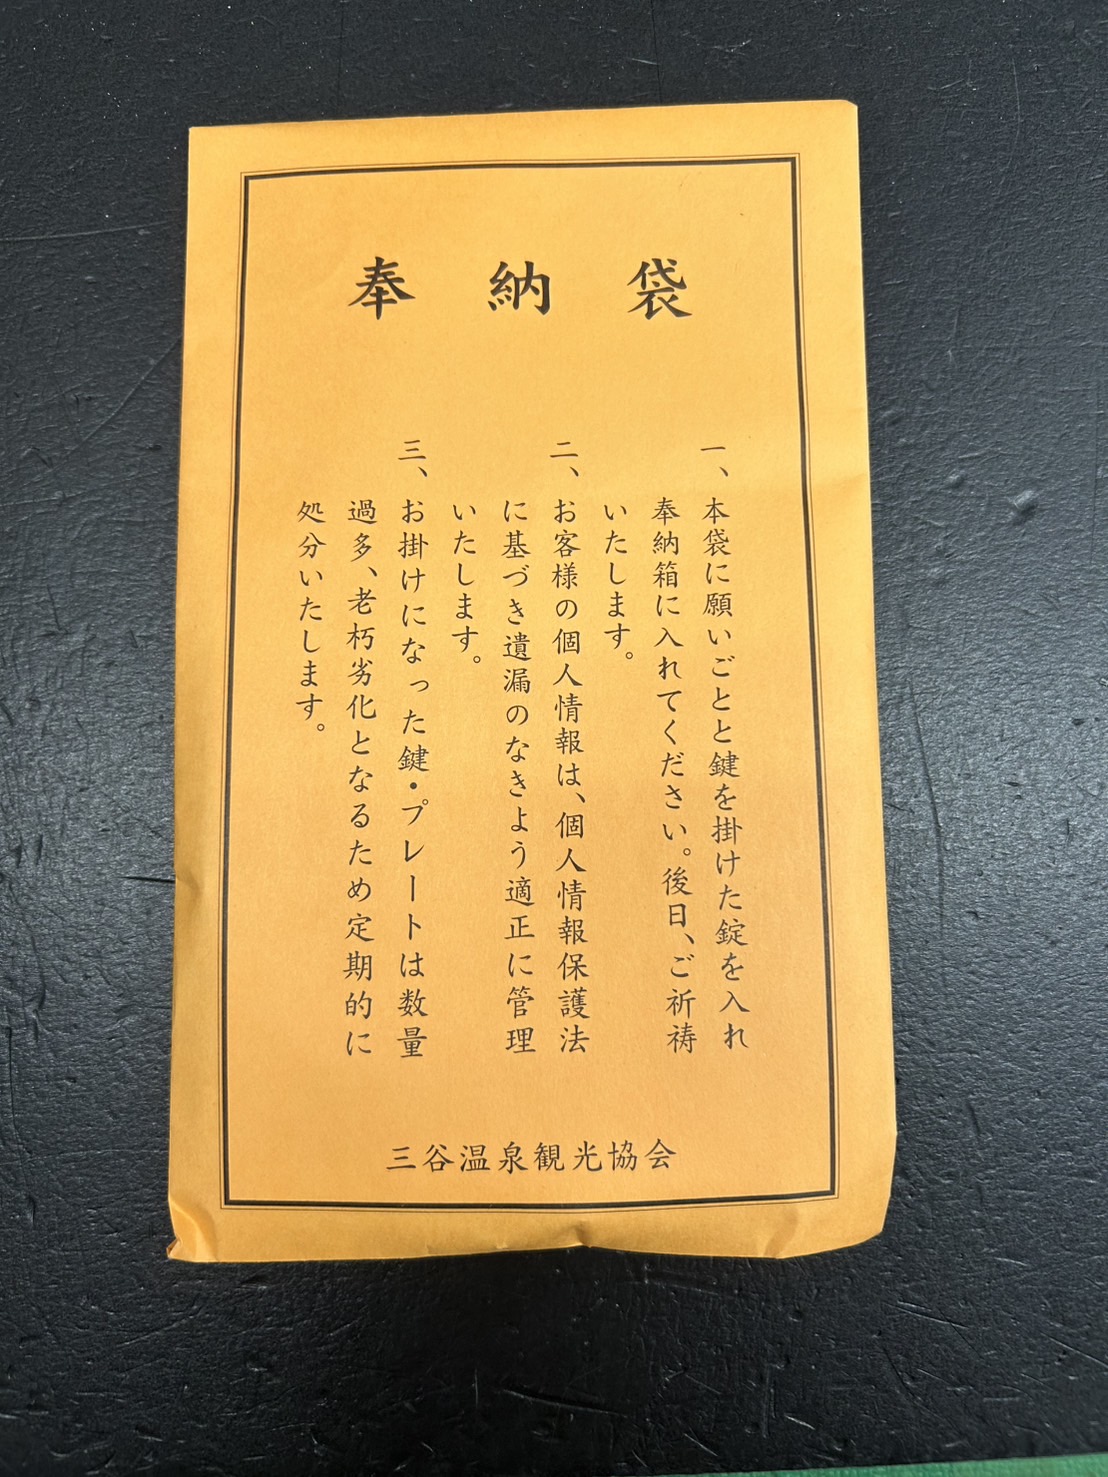 奉納袋
一、本袋に願いごとと鍵を掛けた錠を入れ
奉納箱に入れてください。後日、ご祈祷
いたします。
二、お客様の個人情報は、個人情報保護法
に基づき遺漏のなきよう適正に管理
いたします。
三、お掛けになった鍵・プレートは数量
過多、老朽劣化となるため定期的に
処分いたします。
三谷温泉観光協会